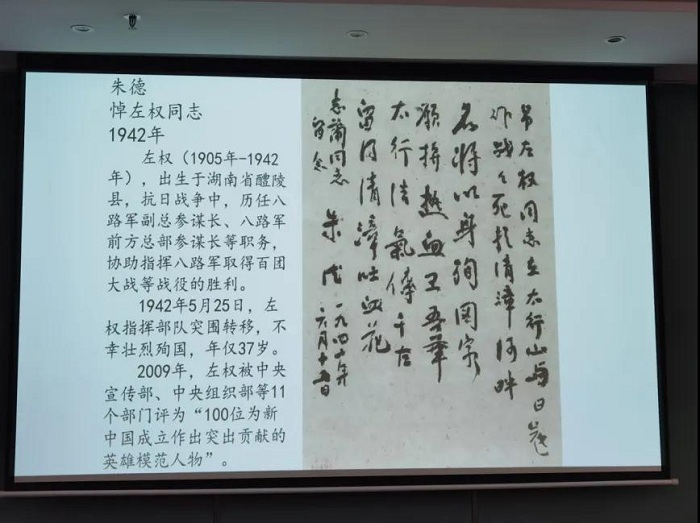 朱德
悼左权同志
1942年
左权（1905年-1942
年），出生于湖南省醴陵
县，抗日战争中，历任八
路军副总参谋长、八路军
前方总部参谋长等职务，
协助指挥八路军取得百团
大战等战役的胜利。
1942年5月25日，左
权指挥部队突围转移，不
幸壮烈殉国，年仅37岁。
2009年，左权被中央
宣传部、中央组织部等11
个部门评为“100位为新
中国成立作出突出贡献的
英雄模范人物”。
吊左权同志在太行山与日寇
作战々死於清漳河畔
名将以身殉国家
愿热血卫吾华
太行浩气传千古
留得清漳吐血花
志蘭同志
留念
朱德
六月十五日